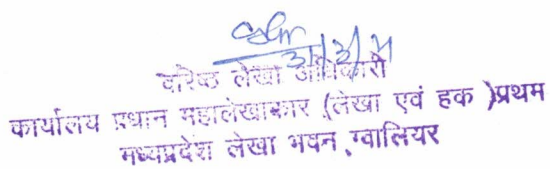 31/3/11
वरिष्ठ लेखा अधिकारी
कार्यालय प्रधान महालेखाकार (लेखा एवं हक )प्रथम
मध्यप्रदेश लेखा भवन ,ग्वालियर